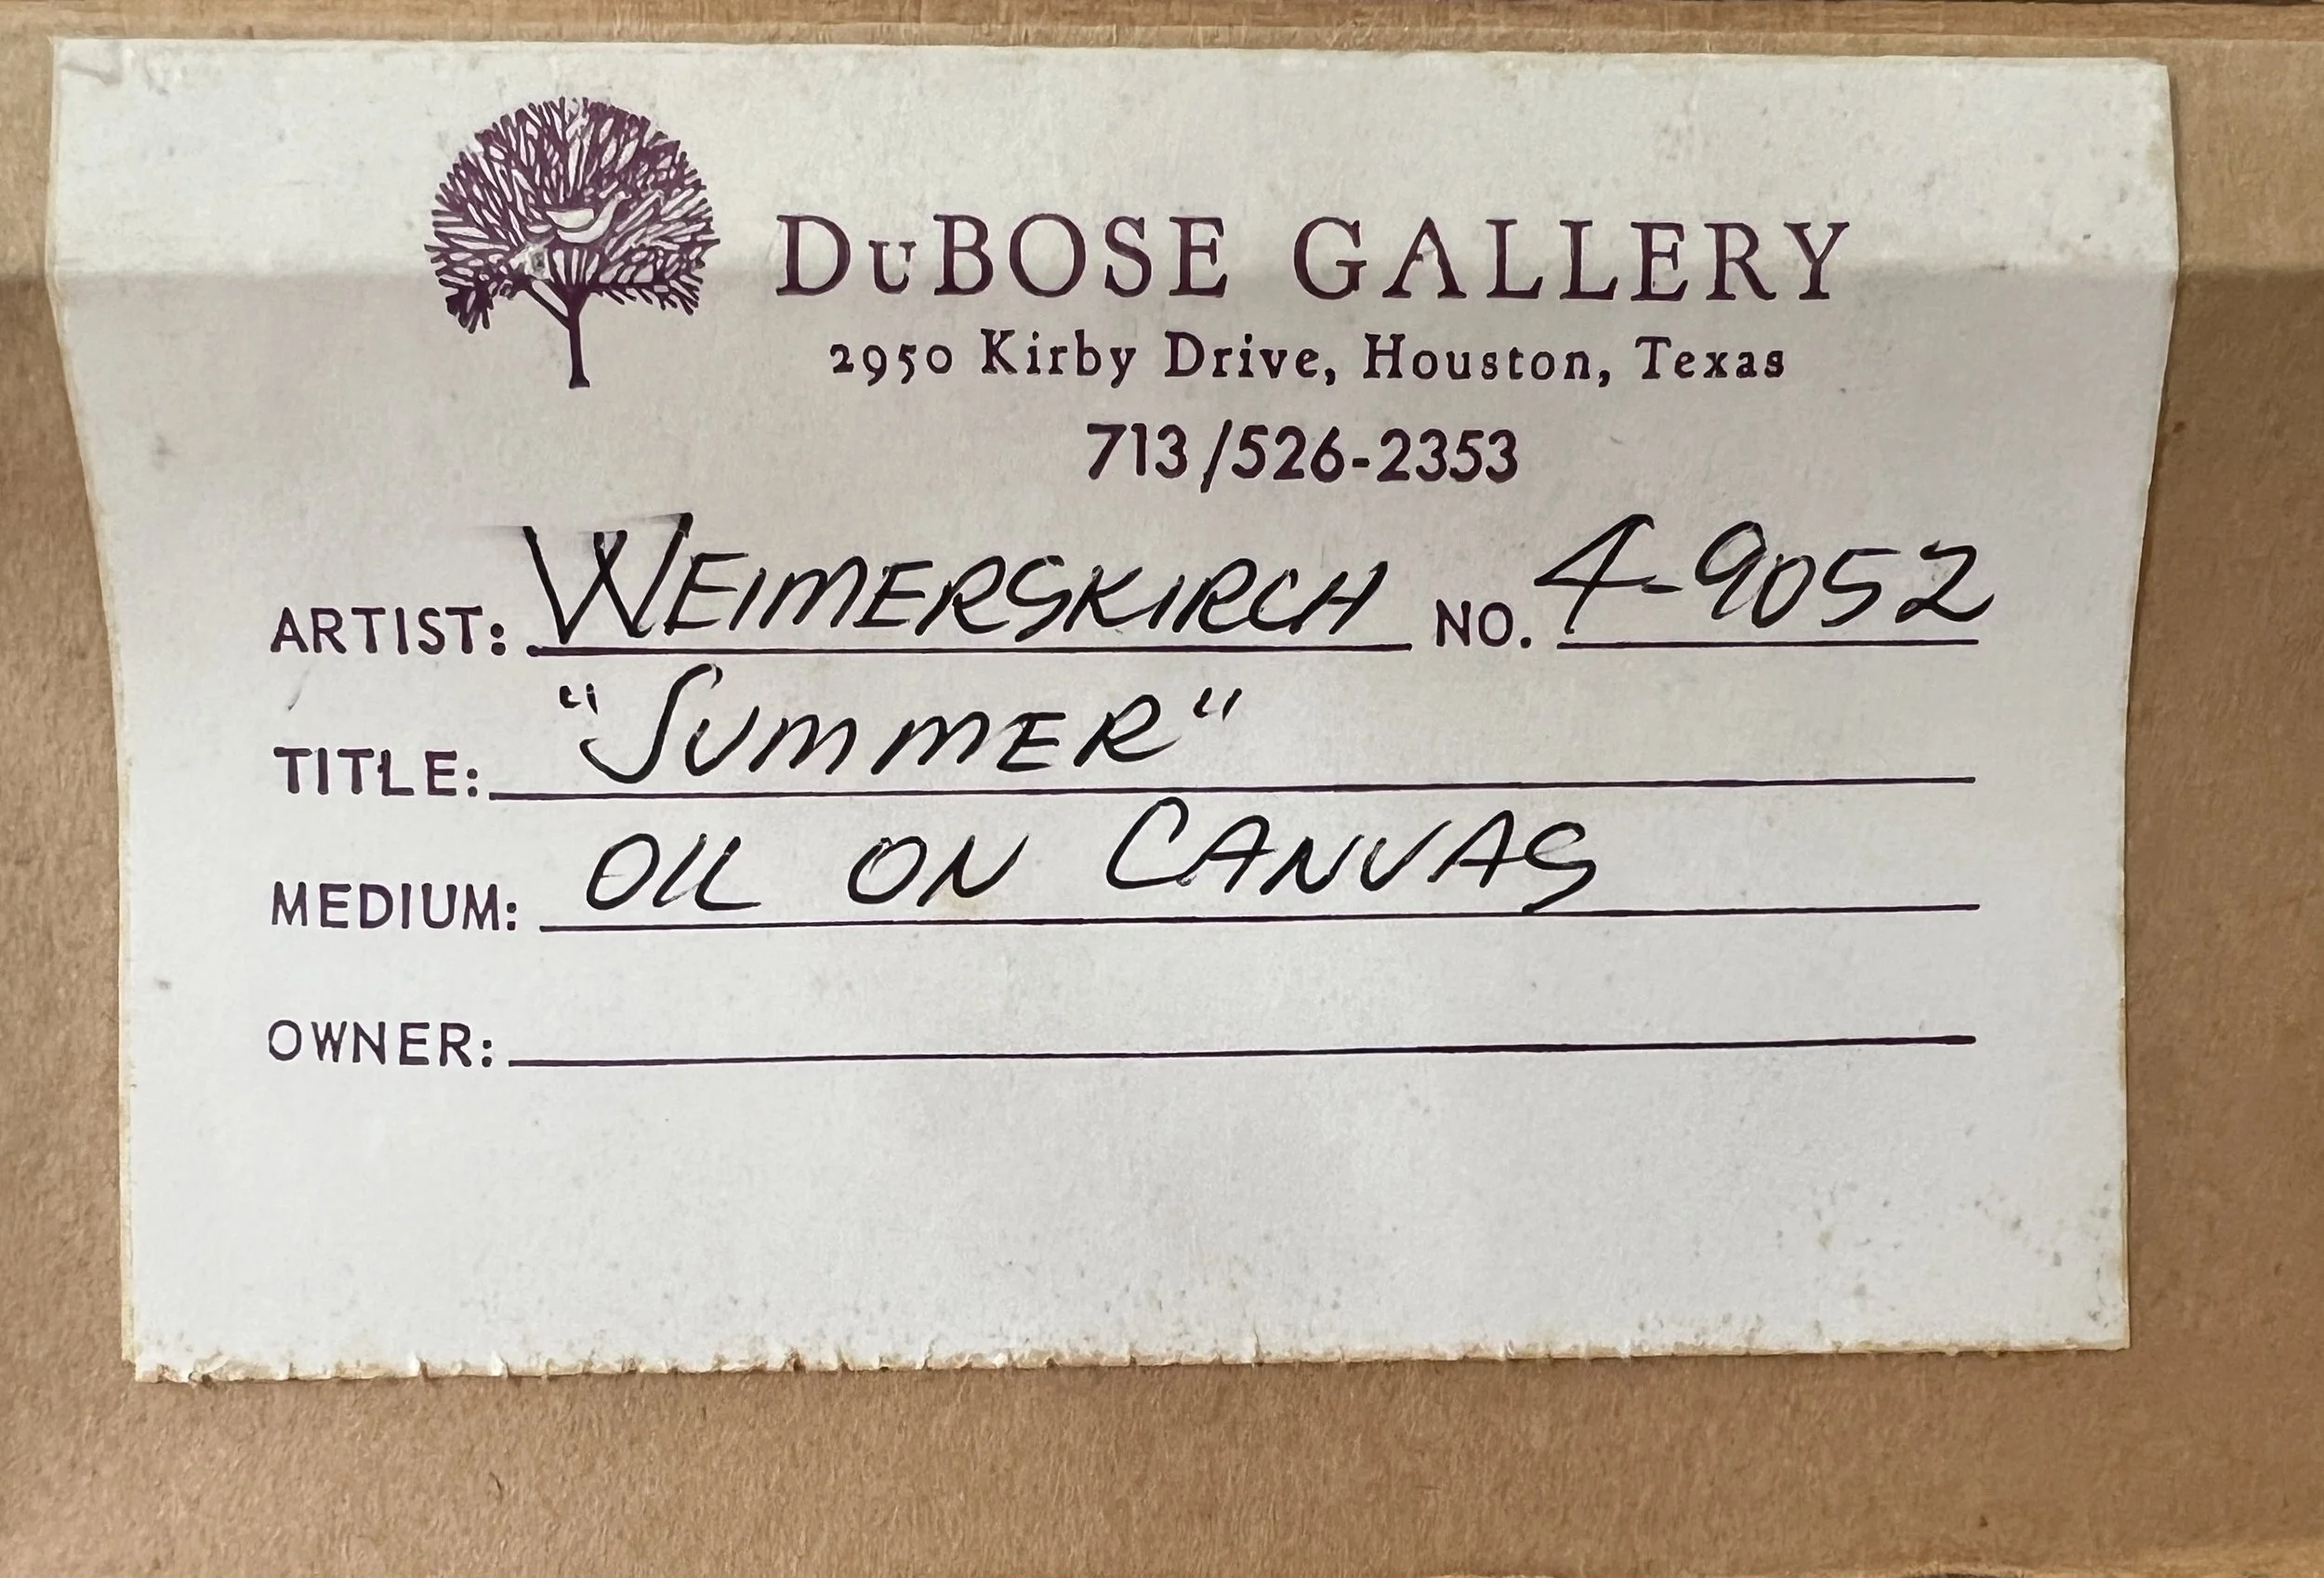 DuBOSE GALLERY
2950 Kirby Drive, Houston, Texas
713/526-2353
ARTIST: WEIMERSKIRCH NO. 4-9052
TITLE: "SUMMER"
MEDIUM: OIL ON CANVAS
OWNER: